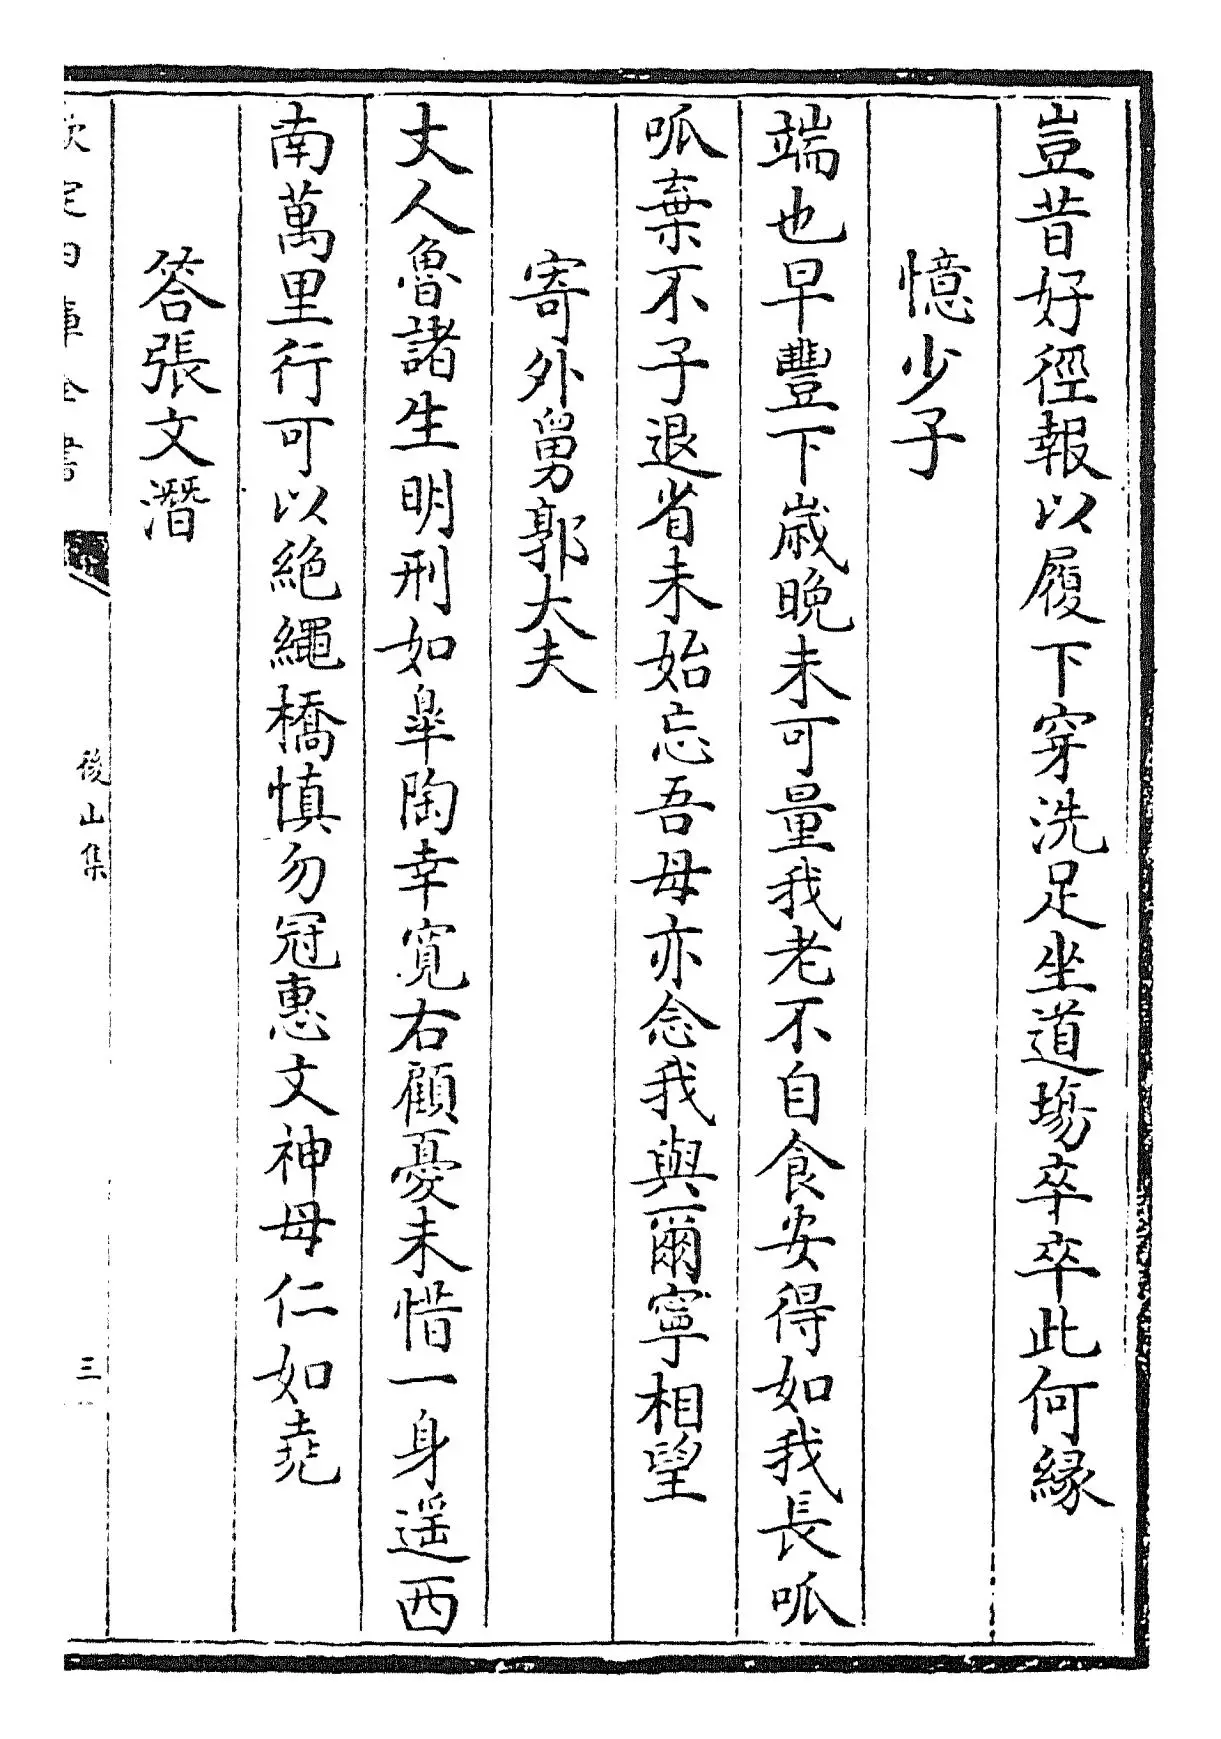 豈昔好徑報以履下穿洗足坐道塲卒卒此何緣
憶少子
端也早豐下歳晚未可量我老不自食安得如我長呱
呱棄不子退省未始忘吾母亦念我與爾寧相望
寄外舅郭大夫
丈人魯諸生明刑如皐陶幸寛右顧憂未惜一身遥西
南萬里行可以絶繩橋慎勿冠惠文神母仁如堯
答張文潛
欽定四庫全書
後山集
三